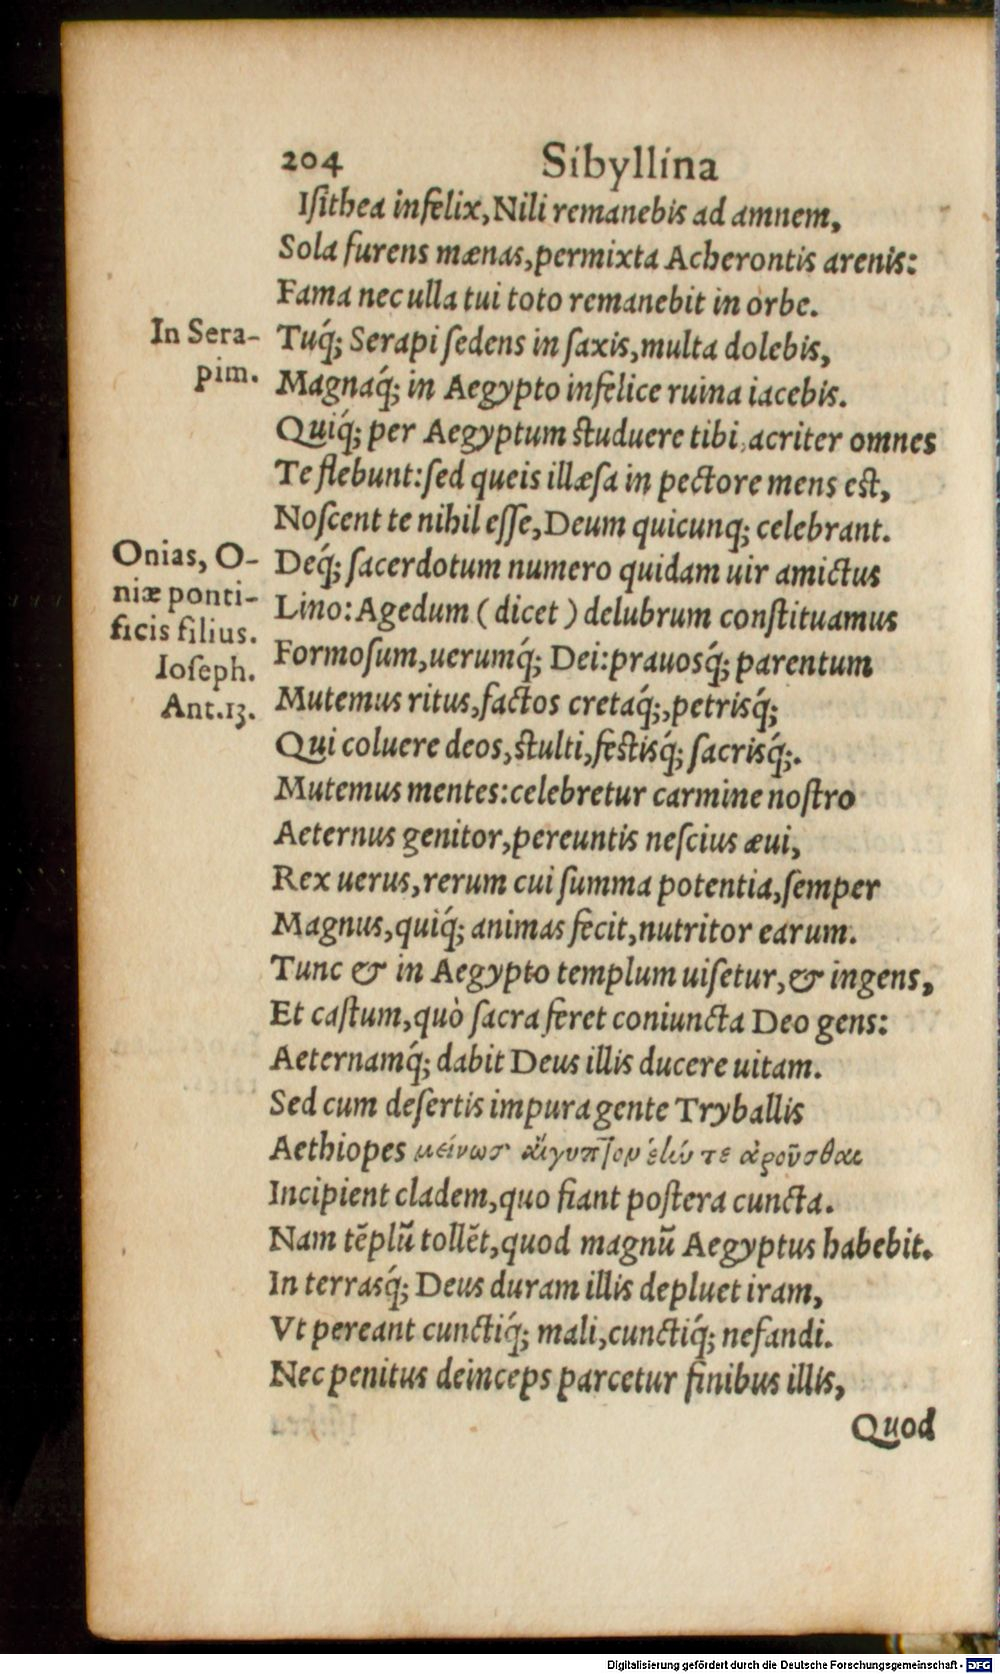 204 Sibyllina
Isithea infelix, Nili remanebis ad amnem,
Sola furens mænas, permixta Acherontis arenis:
Fama nec ulla tui toto remanebit in orbe.
In Sera-
pim.
Tuq́; Serapi ſedens in ſaxis, multa dolebis,
Magnaq́; in Aegypto infelice ruina iacebis.
Quiq́; per Aegyptum ſtuduere tibi, acriter omnes
Te flebunt: ſed queis illæſa in pectore mens eſt,
Noſcent te nihil eſſe, Deum quicunq; celebrant.
Onias, O-
niæ ponti-
ficis filius.
Ioſeph.
Ant.13.
Deq́; ſacerdotum numero quidam uir amictus
Lino: Agedum ( dicet ) delubrum conſtituamus
Formoſum, uerumq́; Dei: prauosq́; parentum
Mutemus ritus, factos cretaq́;, petrisq́;
Qui coluere deos, ſtulti, feſtisq́; ſacrisq́;.
Mutemus mentes: celebretur carmine noſtro
Aeternus genitor, pereuntis neſcius æui,
Rex uerus, rerum cui ſumma potentia, ſemper
Magnus, quiq́; animas fecit, nutritor earum.
Tunc & in Aegypto templum uiſetur, & ingens,
Et caſtum, quò ſacra feret coniuncta Deo gens:
Aeternamq́; dabit Deus illis ducere uitam.
Sed cum deſertis impura gente Tryballis
Aethiopes αἴγυπτον τε ἀροῦσθαι
Incipient cladem, quo fiant poſtera cuncta.
Nam tẽplũ tollẽt, quod magnũ Aegyptus habebit.
In terrasq́; Deus duram illis depluet iram,
Vt pereant cunctiq́; mali, cunctiq́; nefandi.
Nec penitus deinceps parcetur finibus illis,
Quod
Digitalisierung gefördert durch die Deutsche Forschungsgemeinschaft - DFG